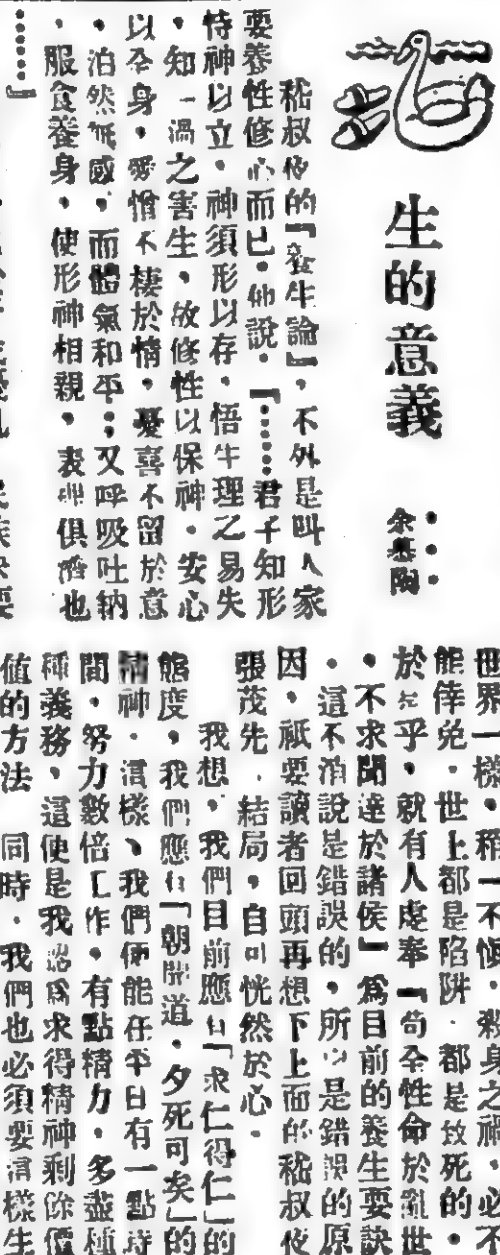 生的意義
余慕陶
嵇叔夜的『養生論』，不外是叫人家
要養性修心而已。他說。『……君子知形
恃神以立，神須形以存，悟生理之易失
，知一過之害生，故修性以保神。安心
以全身，愛憎不棲於情，憂喜不留於意
，泊然無感，而體氣和平；又呼吸吐納
，服食養身，使形神相親，表裡俱濟也
……』
世界一樣。稍一不慎，殺身之禍，必不
能倖免。世上都是陷阱，都是致死的。
於是乎，就有人虔奉『苟全性命於亂世
，不求聞達於諸侯』爲目前的養生要訣
。這不消說是錯誤的，所以是錯誤的原
因，祇要讀者回頭再想下上面的嵇叔夜
張茂先，結局，自可恍然於心。
我想，我們目前應以「求仁得仁」的
態度，我們應有「朝聞道，夕死可矣」的
精神。這樣、我們便能在平日有一點時
間，努力數倍工作，有點精力，多盡種
種義務，這便是我認爲求得精神剩餘價
值的方法 同時，我們也必須要這樣生